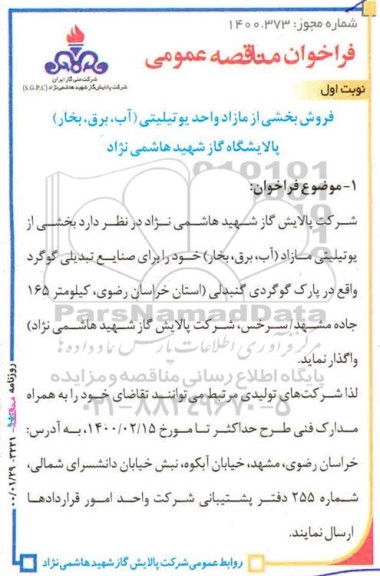 شماره مجوز: ۱۴۰۰.۳۷۳
فراخوان مناقصه عمومی
شرکت ملی گاز ایران
شرکت پالایش گاز شهید هاشمی نژاد (S.G.P.C)
نوبت اول
فروش بخشی از مازاد واحد یوتیلیتی (آب، برق، بخار)
پالایشگاه گاز شهید هاشمی نژاد
۱- موضوع فراخوان:
شرکت پالایش گاز شهید هاشمی نژاد در نظر دارد بخشی از
یوتیلیتی مازاد (آب، برق، بخار) خود را برای صنایع تبدیلی گوگرد
واقع در پارک گوگردی گنبدلی (استان خراسان رضوی، کیلومتر ۱۶۵
جاده مشهد/سرخس، شرکت پالایش گاز شهید هاشمی نژاد)
واگذار نماید.
لذا شرکت‌های تولیدی مرتبط می‌توانند تقاضای خود را به همراه
مدارک فنی طرح حداکثر تا مورخ ۱۴۰۰/۰۲/۱۵، به آدرس:
خراسان رضوی، مشهد، خیابان آبکوه، نبش خیابان دانشسرای شمالی،
شماره ۲۵۵ دفتر پشتیبانی شرکت واحد امور قراردادها
ارسال نمایند.
روابط عمومی شرکت پالایش گاز شهید هاشمی نژاد
روزنامه مناقصه ۳۲۲۱- ۰۰/۰۱/۲۹
ParsNamadData
مرکز فرآوری اطلاعات پارس نماد داده ها
پایگاه اطلاع رسانی مناقصه و مزایده
۰۲۱-۸۸۳۴۹۶۷۰-۵